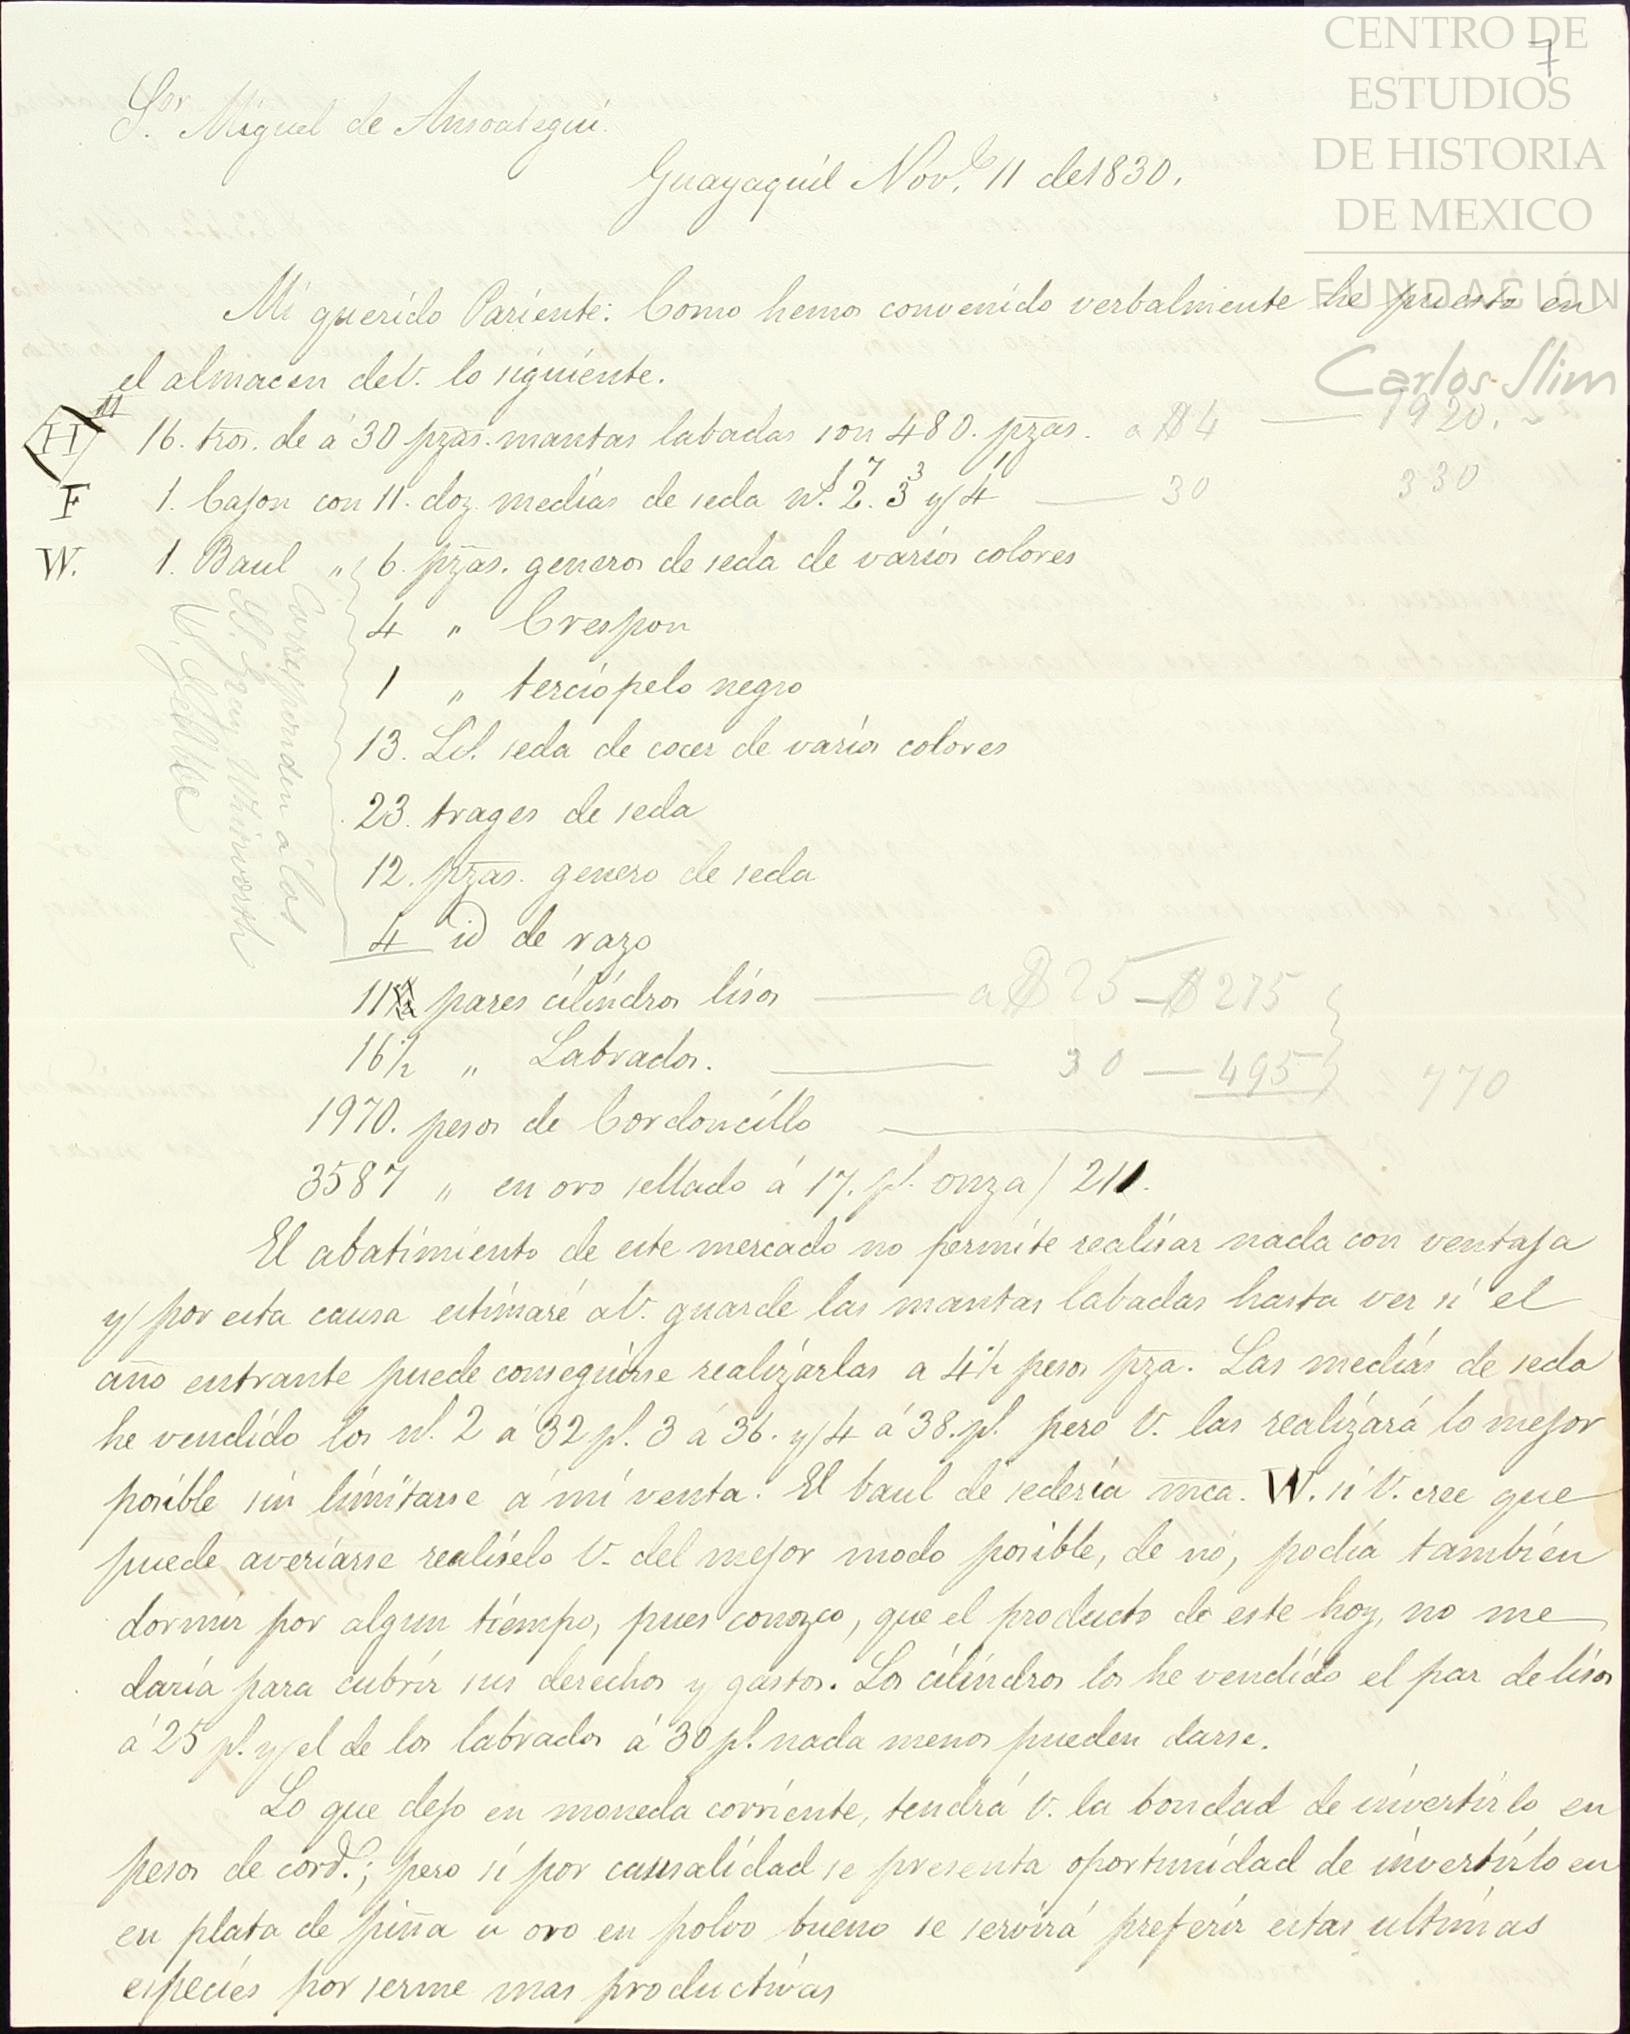 CENTRO DE
ESTUDIOS
DE HISTORIA
DE MEXICO
FUNDACIÓN
Carlos Slim
7
Sor. Miguel de Ansoategui.
Guayaquil Nov.e 11 de 1830.
Mi querido Pariente: Como hemos convenido verbalmente he puesto en
el almacen de V. lo siguiente.
H 16. tros. de á 30 pzas. mantas labadas son 480. pzas. a $4 — 1920.
F 1. Cajon con 11. doz. medias de seda nos. 2. 3 y 4 — 30 330
W. 1. Baul " 6. pzas. generos de seda de varios colores
4 " Crespon
1 " terciopelo negro
13. Lib. seda de cocer de varios colores
23. trages de seda
12. pzas. genero de seda
4 id de razo
Corresponden á los
SS. Gran Whitworth
y Gellibe
11 pares cilindros lisos — a $25 — $275
16 1/2 " Labrados. — 30 — 495 770
1970. pesos de Cordoncillo —
3587 " en oro sellado á 17. ps. onza / 211.
El abatimiento de este mercado no permite realisar nada con ventaja
y por esta causa estimaré a V. guarde las mantas labadas hasta ver si el
año entrante puede conseguirse realizarlas a 4 1/2 pesos pza. Las medias de seda
he vendido los ns. 2 á 32 ps. 3 á 36. y 4 á 38. ps. pero V. las realizará lo mejor
posible sin limitarse á mi venta. El baul de sederia mca. W. si V. cree que
puede averiarse realiselo V. del mejor modo posible, de nó, podia tambien
dormir por algun tiempo, pues conozco, que el producto de este hoy, no me
daria para cubrir sus derechos y gastos. Los cilindros los he vendido el par de lisos
á 25 ps. y el de los labrados á 30 ps. nada menos pueden darse.
Lo que dejo en moneda corriente, tendrá V. la bondad de invertirlo en
pesos de cord.o; pero si por casualidad se presenta oportunidad de invertirlo en
en plata de piña u oro en polvo bueno se servirá preferir estas ultimas
especies por serme mas productivas